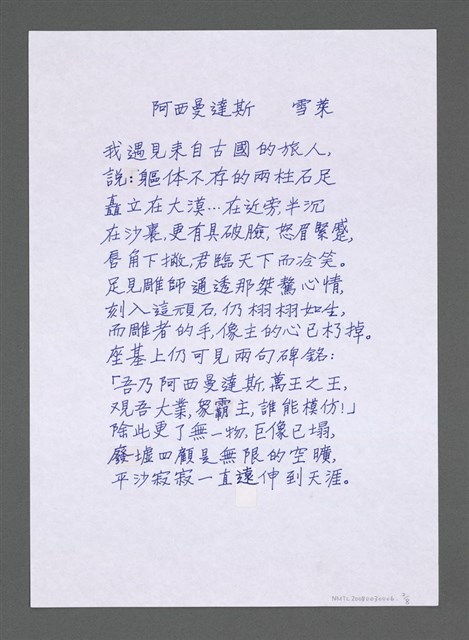 阿西曼達斯　　雪萊
我遇見来自古國的旅人，
說：軀体不存的兩柱石足
矗立在大漠…在近旁，半沉
在沙裏，更有具破臉，怒眉緊蹙，
唇角下撇，君臨天下而冷笑。
足見雕師通透那桀驁心情，
刻入這頑石，仍栩栩如生，
而雕者的手，像主的心已朽掉。
座基上仍可見兩句碑銘：
「吾乃阿西曼達斯，萬王之王，
覌吾大業，眾霸主，誰能模仿！」
除此更了無一物，巨像已塌，
廢墟四顧是無限的空曠，
平沙寂寂一直遠伸到天涯。